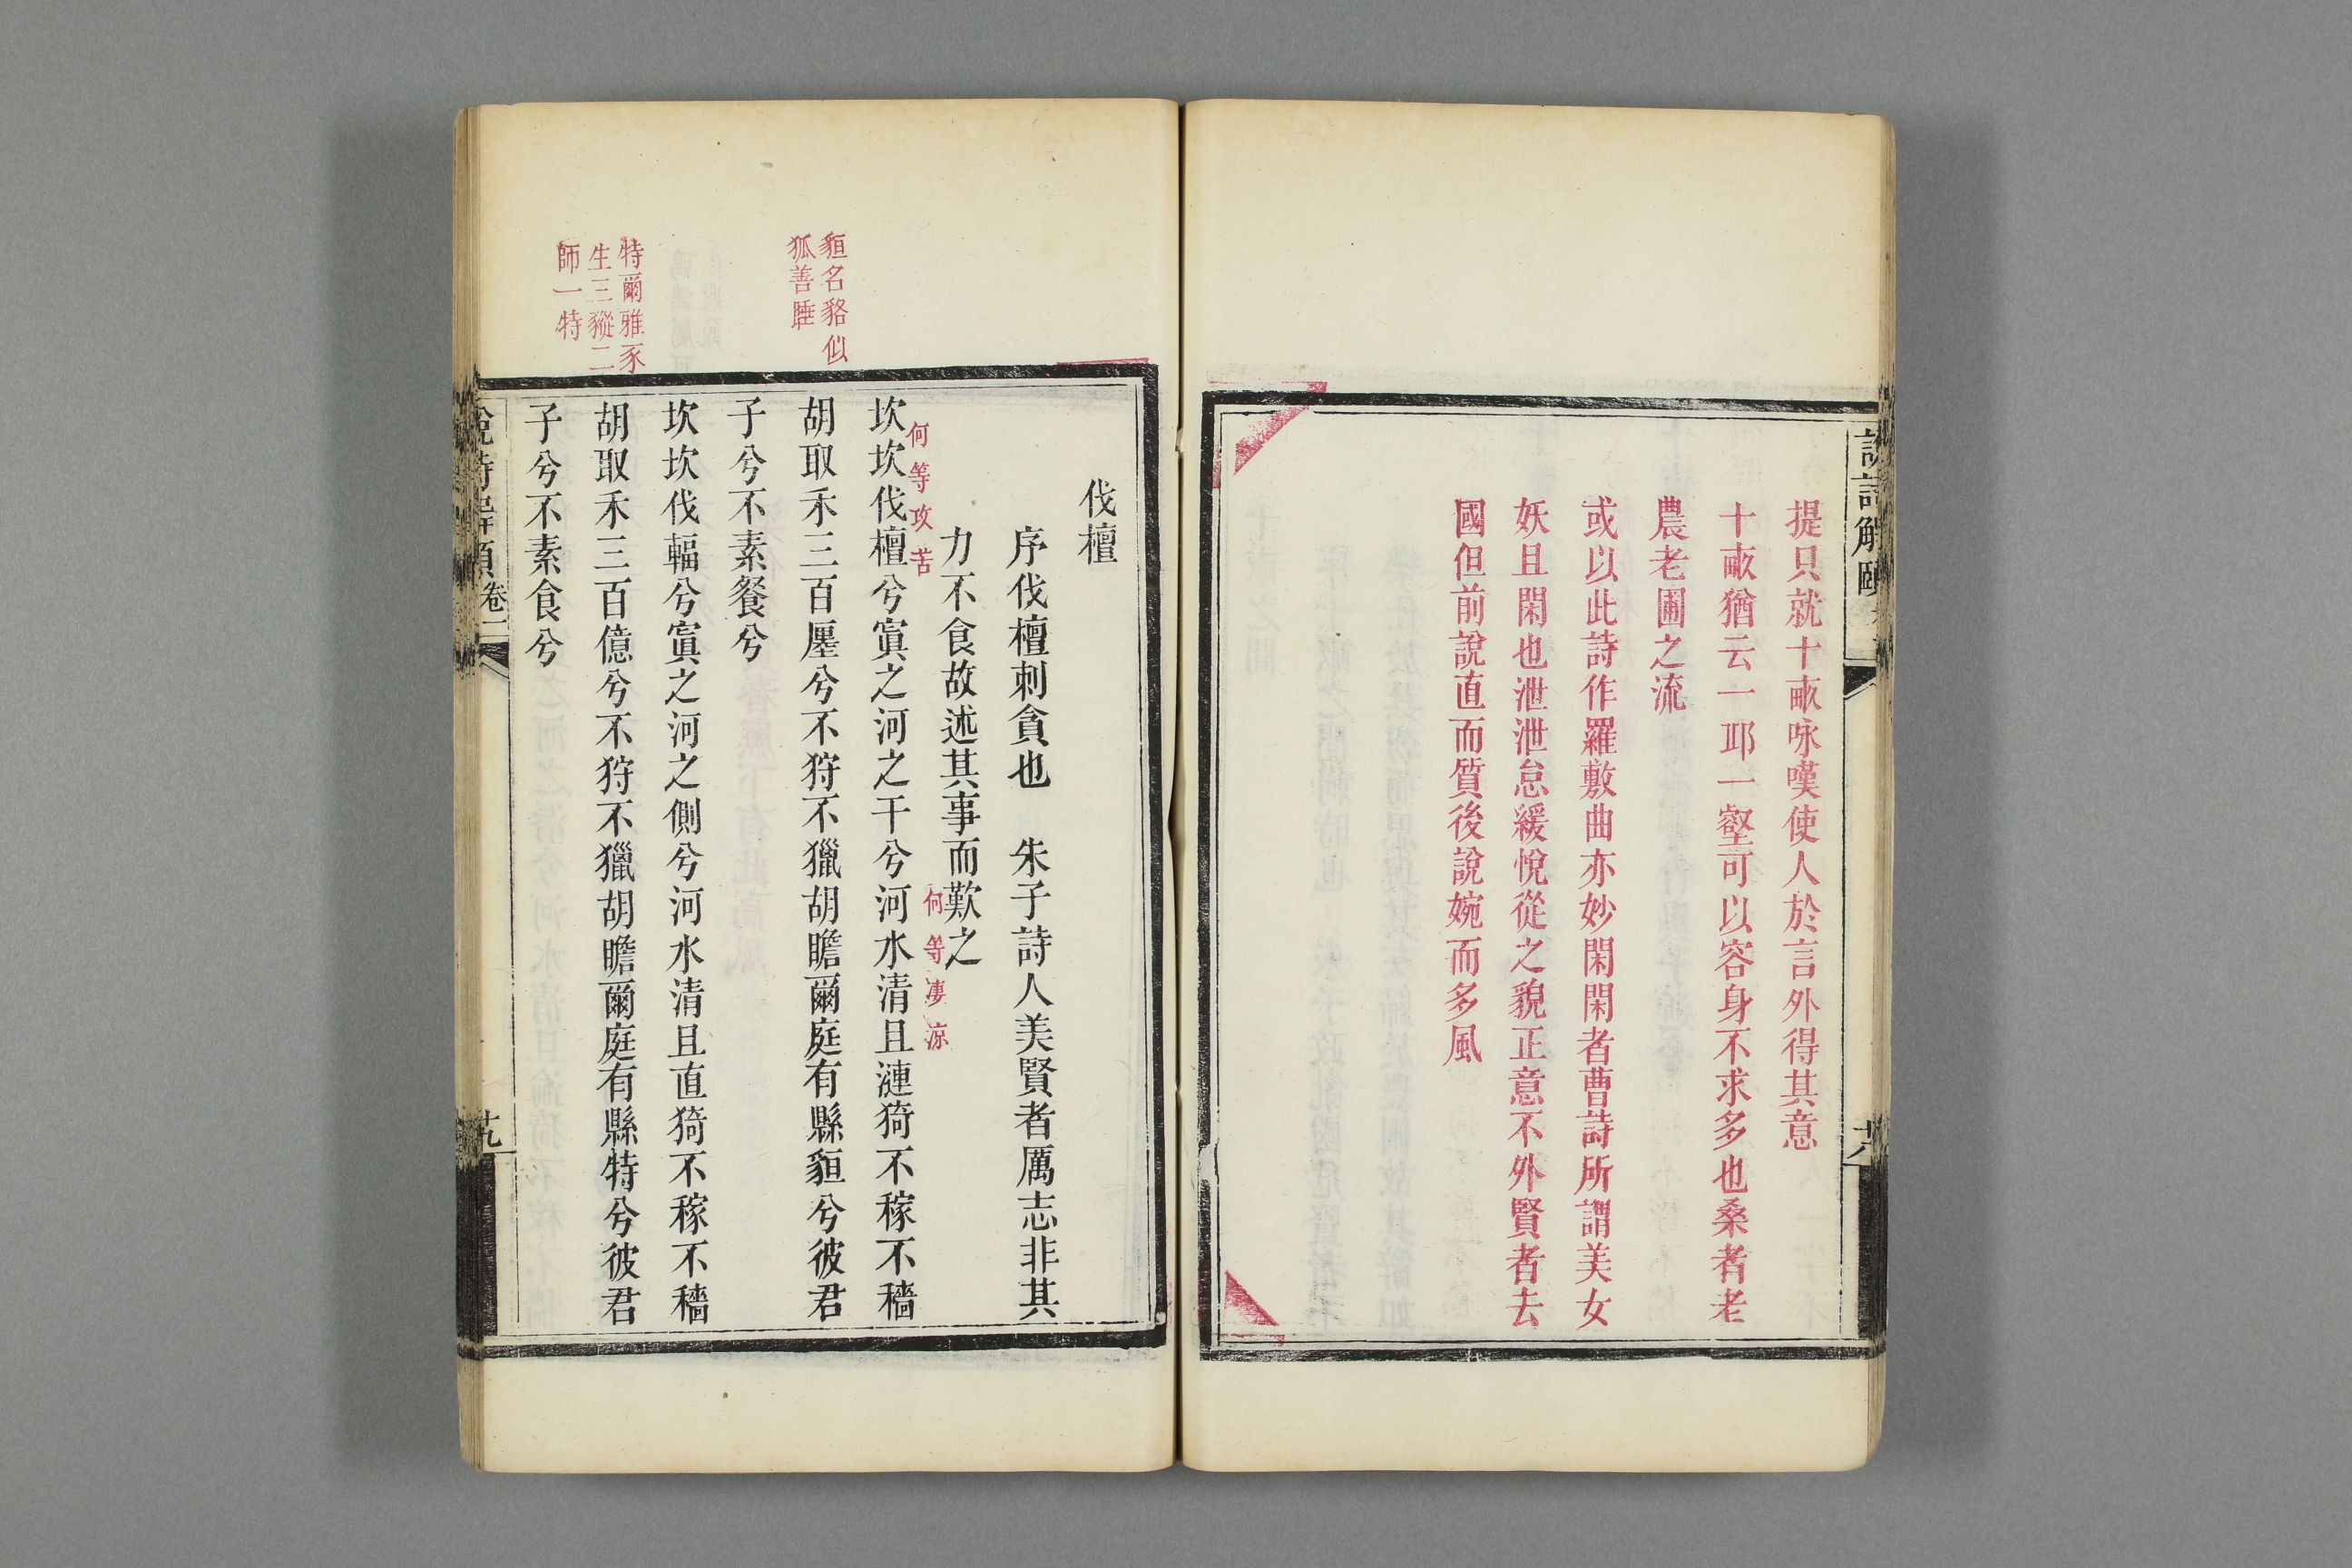 提只就十畝咏嘆使人於言外得其意
十畝猶云一邱一壑可以容身不求多也桑者老
農老圃之流
或以此詩作羅敷曲亦妙閑閑者曹詩所謂美女
妖且閑也泄泄怠緩悅從之貌正意不外賢者去
國但前說直而質後說婉而多風
貆名貉似
狐善睡
特爾雅豕
生三豵二
師一特
伐檀
序伐檀刺貪也　朱子詩人美賢者厲志非其
力不食故述其事而歎之
何等攻苦
何等凄凉
坎坎伐檀兮寘之河之干兮河水清且漣猗不稼不穡
胡取禾三百廛兮不狩不獵胡瞻爾庭有縣貆兮彼君
子兮不素餐兮
坎坎伐輻兮寘之河之側兮河水清且直猗不稼不穡
胡取禾三百億兮不狩不獵胡瞻爾庭有縣特兮彼君
子兮不素食兮
卷二